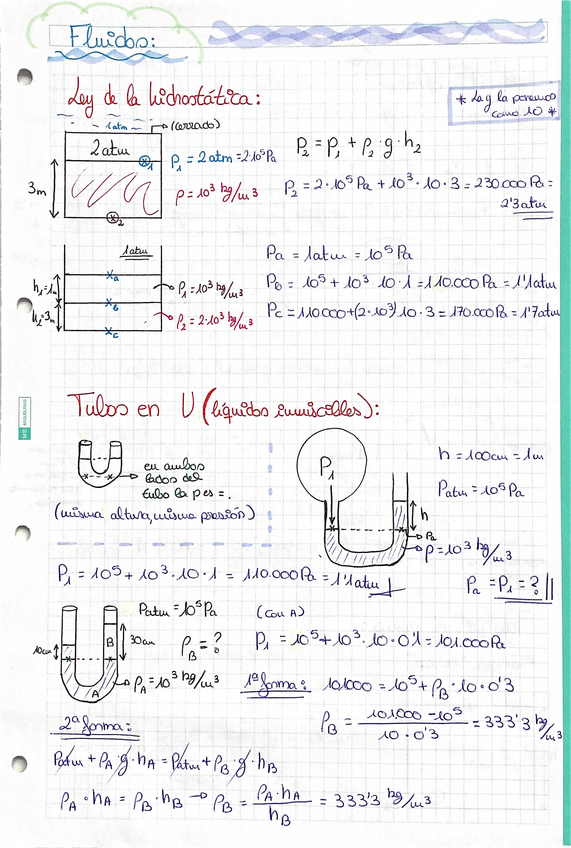 Fluidos:
Ley de la hidrostática:
* La g la ponemos
como 10 *
1atm → (cerrado)
2 atm
×1 P₁ = 2 atm = 2·10⁵ Pa
3m
ρ = 10³ kg/m³
×2
P₂ = P₁ + ρ₂ · g · h₂
P₂ = 2·10⁵ Pa + 10³ · 10 · 3 = 230.000 Pa =
2'3 atm
1 atm
×a
h₁=1m
ρ₁ = 10³ kg/m³
×b
h₂=3m
ρ₂ = 2·10³ kg/m³
×c
Pa = 1 atm = 10⁵ Pa
Pb = 10⁵ + 10³ · 10 · 1 = 110.000 Pa = 1'1 atm
Pc = 110000 + (2·10³) 10 · 3 = 170.000 Pa = 1'7 atm
Tubos en U (líquidos inmiscibles):
en ambos
lados del
tubo la p es =.
(misma altura, misma presión)
P₁
h
Pa
ρ = 10³ kg/m³
h = 100cm = 1m
Patm = 10⁵ Pa
Pa = P₁ = ?
P₁ = 10⁵ + 10³ · 10 · 1 = 110.000 Pa = 1'1 atm
10cm
B
30cm
A
Patm = 10⁵ Pa
ρB = ?
ρA = 10³ kg/m³
(Con A)
P₁ = 10⁵ + 10³ · 10 · 0'1 = 101.000 Pa
1ª forma: 101000 = 10⁵ + ρB · 10 · 0'3
ρB = (101000 − 10⁵) / (10 · 0'3) = 333'3 kg/m³
2ª forma:
Patm + ρA · g · hA = Patm + ρB · g · hB
ρA · hA = ρB · hB → ρB = (ρA · hA) / hB = 333'3 kg/m³